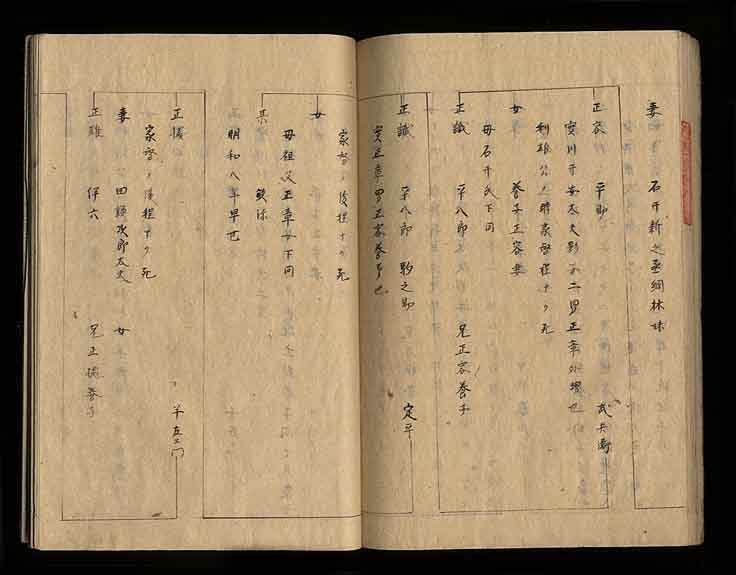 妻 石井新之丞綱林妹
正容 平助 武兵衛
実川井安太夫 二男正章外孫也
利雄公ノ時家督程ナク死
女 養子正容妻
母石井氏下同
正識 平八郎 兄正容養子
正識 平八郎 駒之助 定平
実正章男正容養子也
家督ノ後程ナク死
女
母祖父正章女下同
某
明和八年早世
正 半左エ門
家督ノ後程ナク死
妻 田鎖次郎太夫 女
正雄 伊六 兄正 養子